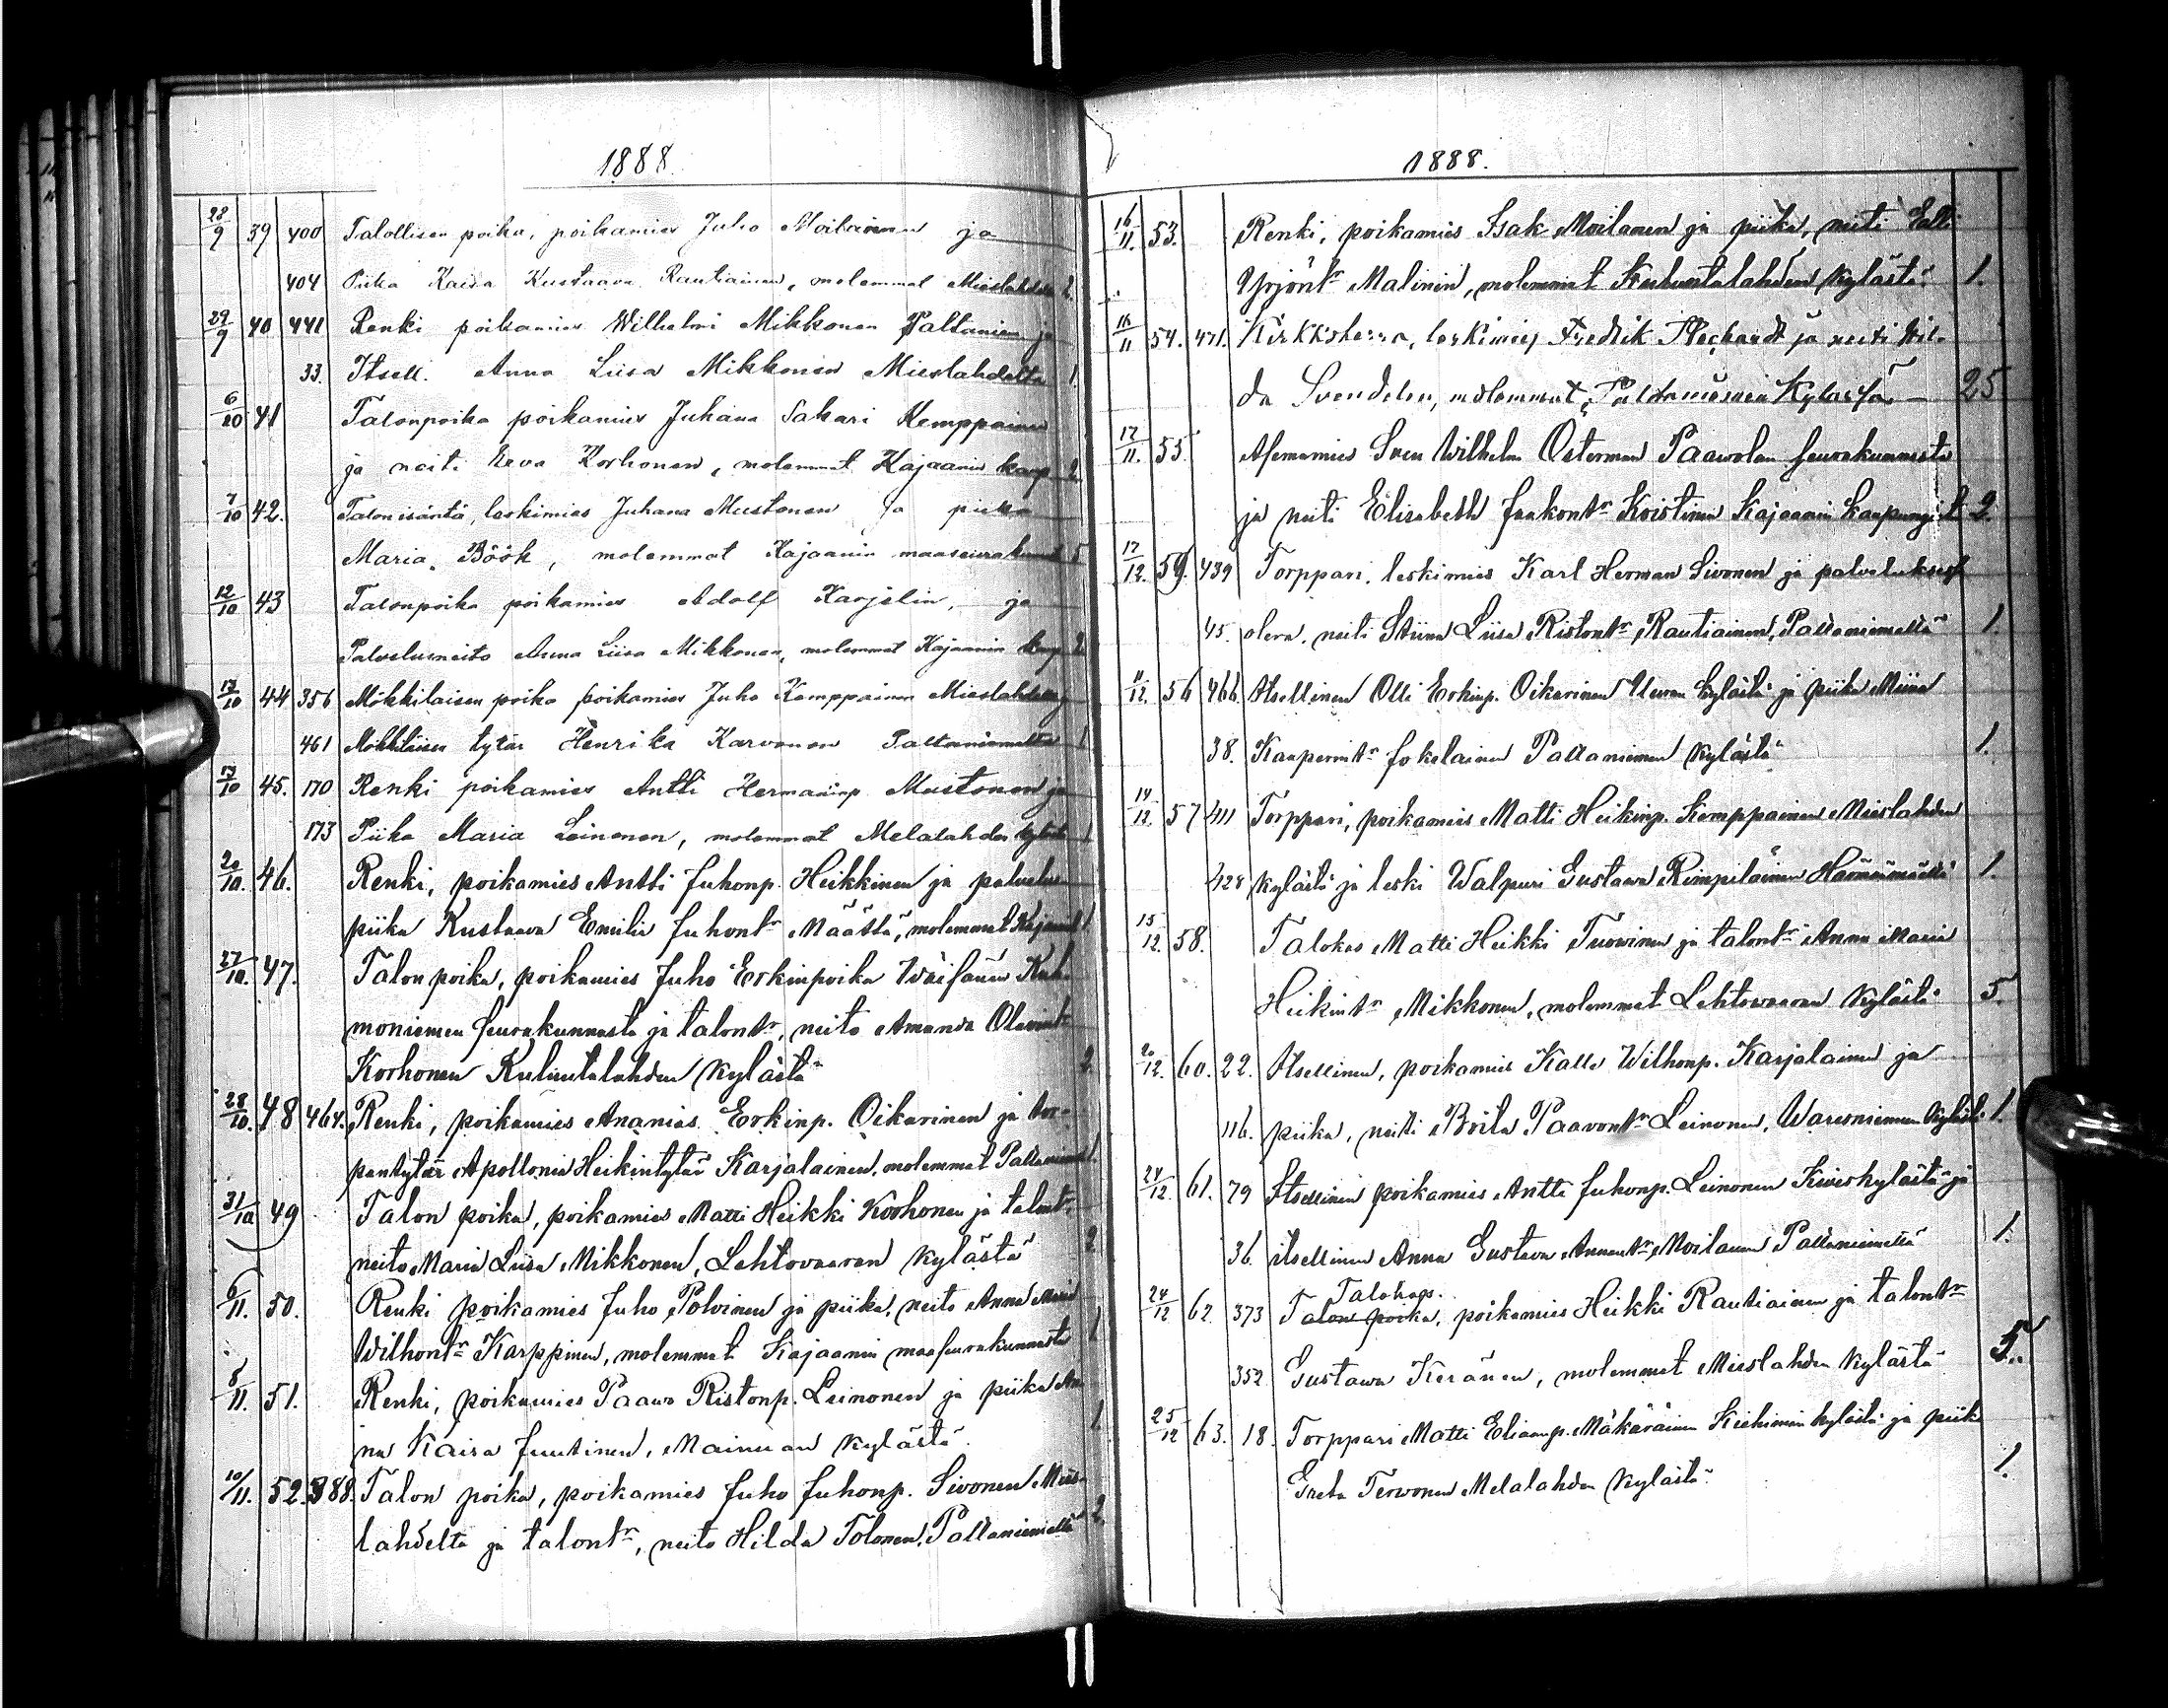 1888.
28/9 39 400 Talollisen poika, poikamies Juho Moilainen ja
404 Piika Kaisa Kustaava Rautiainen, molemmat Mieslahdelta 2.
29/9 40 441 Renki poikamies Wilhelmi Mikkonen Paltaniemi ja
33. Itsell. Anna Liisa Mikkonen Mieslahdelta 1
6/10 41 Talonpoika poikamies Juhana Sakari Kemppainen
ja neiti Eeva Korhonen, molemmat Kajaanin kaup 2
7/10 42. Talonisäntä, leskimies Juhana Mustonen ja piika
Maria Böök, molemmat Kajaanin maaseurakunnat 5
12/10 43 Talonpoika poikamies Adolf Karjelin, ja
Palvelusneito Anna Liisa Mikkonen, molemmat Kajaanin kaup 2.
13/10 44 356 Mökkiläisen poika poikamies Juho Kemppainen Mieslahdelta
461 Mökkiläisen tytär Henrika Karvonen Paltaniemeltä 1
13/10 45. 170 Renki poikamies Antti Hermaninp Mustonen ja
173 Piika Maria Leinonen, molemmat Melalahden kylästä 1
20/10. 46. Renki, poikamies Antti Juhonp. Heikkinen ja palvelus
piika Kustaava Emilia Juhontr Määttä, molemmat 1
27/10. 47. Talon poika, poikamies Juho Erkinpoika Wäisänen Kuh-
moniemen seurakunnasta ja talontr, neito Amanda Olavint
Korhonen Kuluntalahden kylästä 2.
28/10. 48 464. Renki, poikamies Ananias Erkinp. Oikarinen ja tor-
pantytär Apollonia Heikintytär Karjalainen, molemmat 1.
31/10 49 Talon poika, poikamies Matti Heikki Korhonen ja talontr
neito Maria Liisa Mikkonen, Lehtovaaran kylästä 2
6/11. 50. Renki poikamies Juho Polvinen ja piika, neito Anna Maria
Wilhontr Karppinen, molemmat Kajaanin maaseurakunnasta 1
8/11. 51. Renki, poikamies Paavo Ristonp. Leinonen ja piika An-
na Kaisa Juutinen, Mainuan kylästä. 1.
10/11. 52. 388. Talon poika, poikamies Juho Juhonp. Sivonen Mies-
lahdelta ja talontr, neito Hilda Tolonen, Paltaniemeltä 2.
1888.
16/11. 53. Renki, poikamies Isak Moilanen ja piika, neiti
Yrjöntr Malinin, molemmat Kuluntalahden kylästä 1.
16/11 54. 471. Kirkkoherra, leskimies Fredrik ja neiti Hil-
da Svendelin, molemmat Paltaniemen kylästä 25
17/11. 55. Asemamies Sven Wilhelm Österman Paavolan seurakunnasta
ja neiti Elisabeth Jaakontr Koistinen Kajaanin kaupungist 2.
17/12. 59. 439 Torppari, leskimies Karl Herman Sivonen ja palveluksessa
45. oleva, neiti Stiina Liisa Ristontr Rautiainen, Paltaniemeltä 1.
11/12. 56 466. Itsellinen Olli Erkinp. Oikarinen kylästä ja piika Miina
38. Kaupernintr Jokelainen Paltaniemen kylästä 1.
14/12. 57 411 Torppari, poikamies Matti Heikinp. Kemppainen Mieslahden
428 kylästä ja leski Walpuri Gustava Rimpiläinen Hännämäeltä 1.
15/12. 58. Talokas Matti Heikki Tuovinen ja talontr Anna Maria
Heikintr Mikkonen, molemmat Lehtowaaran kylästä 5.
20/12. 60. 22. Itsellinen, poikamies Kalle Wilhonp. Karjalainen ja
116. piika, neiti Brita Paavontr Leinonen, Warisniemen kyläst 1.
24/12. 61. 79 Itsellinen poikamies Antti Juhonp. Leinonen Kiveskylästä ja
36. itsellinen Anna Gustava Annantr Moilanen Paltaniemeltä 1.
Talokas.
24/12 62. 373 Talon poika, poikamies Heikki Rautiainen ja talontr
352 Gustava Keränen, molemmat Mieslahden kylästä 5.
25/12 63. 18. Torppari Matti Eliaanp. Mäkäräinen Kiehimän kylästä ja piik
Greta Tervonen Melalahden kylästä 1.